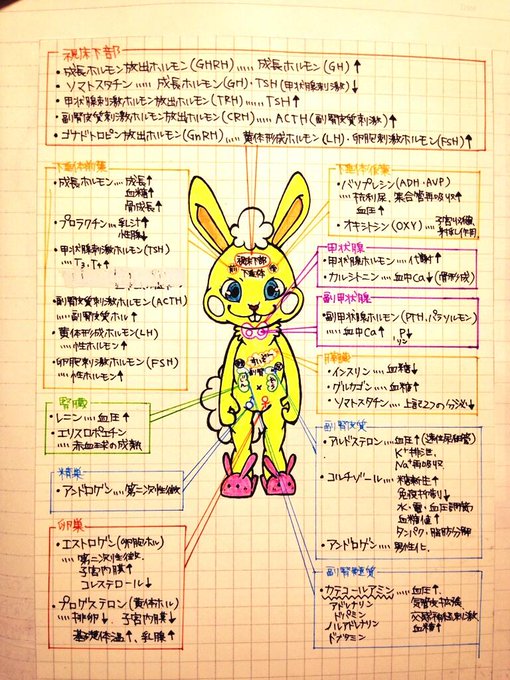 視床下部
・成長ホルモン放出ホルモン(GHRH)..... 成長ホルモン(GH)↑
・ソマトスタチン ..... 成長ホルモン(GH)・TSH(甲状腺刺激)↓
・甲状腺刺激ホルモン放出ホルモン(TRH)..... TSH↑
・副腎皮質刺激ホルモン放出ホルモン(CRH)..... ACTH(副腎皮質刺激)↑
・ゴナドトロピン放出ホルモン(GnRH)..... 黄体形成ホルモン(LH)・卵胞刺激ホルモン(FSH)↑
下垂体前葉
・成長ホルモン.... 成長↑
血糖↑
骨成長↑
・プロラクチン.... 乳汁↑
性腺↓
・甲状腺刺激ホルモン(TSH)
.... T3, T4↑
・副腎皮質刺激ホルモン(ACTH)
.... 副腎皮質ホル↑
・黄体形成ホルモン(LH)
....性ホルモン↑
・卵胞刺激ホルモン(FSH)
....性ホルモン↑
腎臓
・レニン.... 血圧↑
・エリスロポエチン
.... 赤血球の成熟
精巣
・アンドロゲン.... 第二次性徴
卵巣
・エストロゲン(卵胞ホル)
.... 第二次性徴
子宮内膜↑
コレステロール↓
・プロゲステロン(黄体ホル)
.... 排卵↓, 子宮内膜↓
基礎体温↑, 乳腺↑
視床下部
前 下垂体 後
下垂体後葉
・バソプレシン(ADH・AVP)
.... 抗利尿, 集合管再吸収↑
血圧↑
・オキシトシン(OXY).... 子宮収縮
射乳作用
甲状腺
・甲状腺ホルモン.... 代謝↑
・カルシトニン.... 血中Ca↓(骨形成)
副甲状腺
・副甲状腺ホルモン(PTH, パラソルモン)
.... 血中Ca↑ P↓
リン
膵臓
・インスリン.... 血糖↓
・グルカゴン.... 血糖↑
・ソマトスタチン.... 上記2つの分泌↓
副腎皮質
・アルドステロン.... 血圧↑(遠位尿細管)
K⁺排泄,
Na⁺再吸収
・コルチゾール.... 糖新生↑
免疫抑制
水・電・血圧調節
血糖値↑
タンパク・脂肪分解
・アンドロゲン.... 男性化.
副腎髄質
・カテコールアミン.... 血圧↑,
アドレナリン 気管支拡張
ドパミン 交感神経刺激
ノルアドレナリン 血糖↑